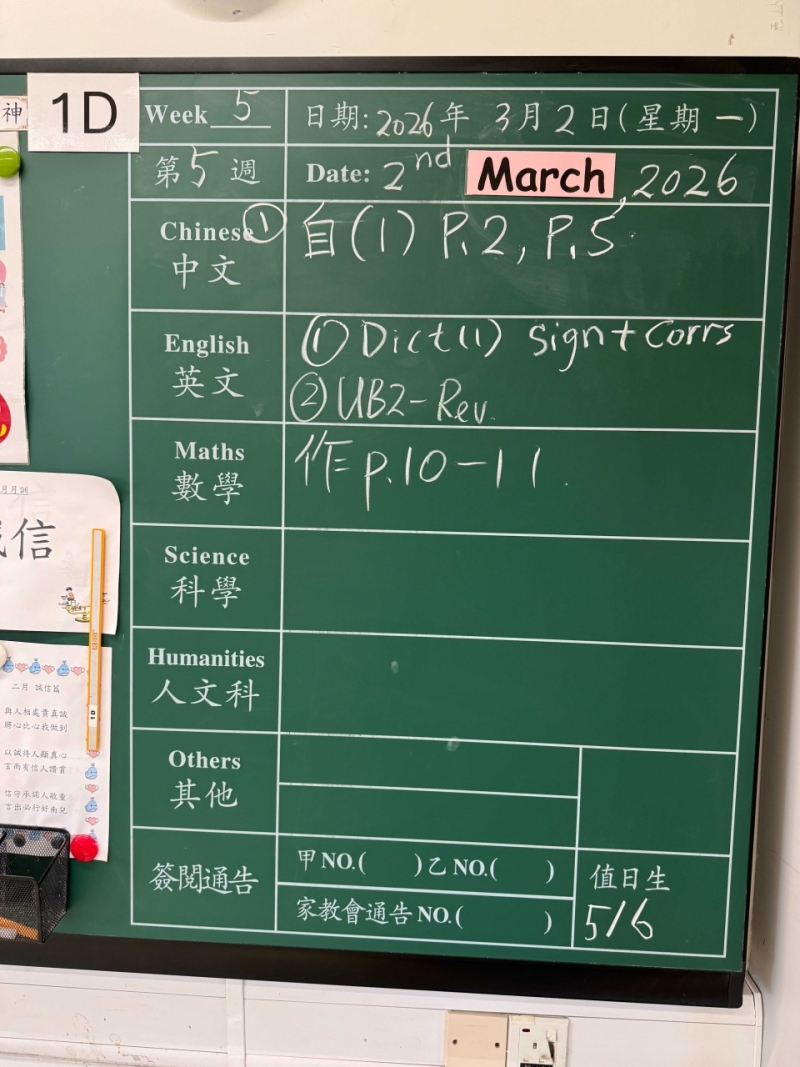 神
1D
Week 5
日期: 2026年 3月2日(星期一)
第5週
Date: 2nd March, 2026
Chinese
中文
① 自(1) P.2, P.5
English
英文
① Dict(1) sign + Corrs
② UB2-Rev.
Maths
數學
作 p.10-11.
Science
科學
Humanities
人文科
Others
其他
簽閱通告
甲NO.( ) 乙NO.( )
家教會通告NO.( )
值日生
5/6
信
二月 誠信篇
與人相處貴真誠
將心比心我做到
以誠待人顯真心
言而有信人讚賞
信守承諾人敬重
言出必行好南兒
1D